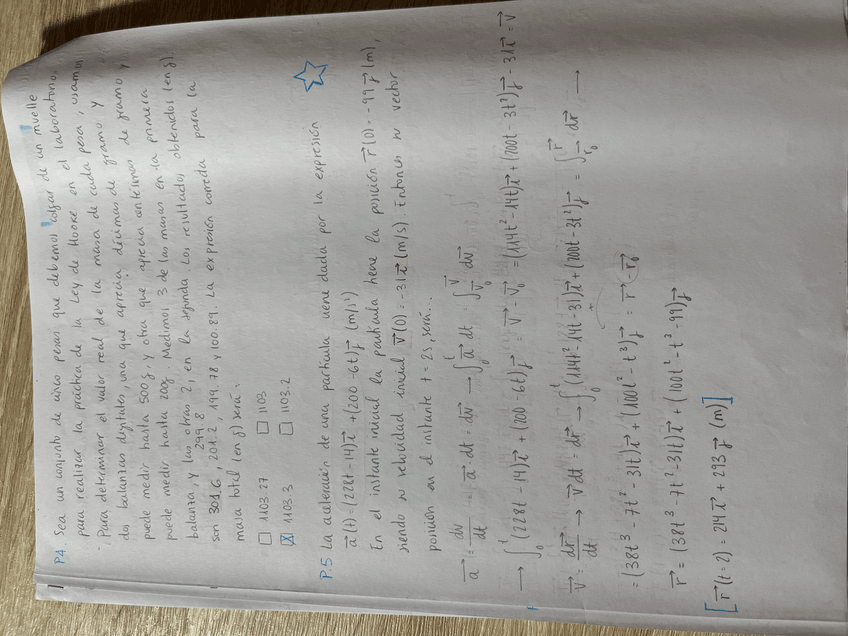 P.4. Sea un conjunto de cinco pesas que debemos colgar de un muelle
para realizar la práctica de la Ley de Hooke en el laboratorio.
Para determinar el valor real de la masa de cada pesa, usamos
dos balanzas digitales, una que aprecia décimas de gramo y
puede medir hasta 500g, y otra que aprecia centésimas de gramo y
puede medir hasta 200g. Medimos 3 de las masas en la primera
balanza, y las otras 2, en la segunda. Los resultados obtenidos (en g)
299.8
son 301.6, 201.2, 199.78 y 100.89. La expresión correcta para la
masa total (en g) será:
☐ 1103.27 ☐ 1103
☒ 1103.3 ☐ 1103.2
P.5 La aceleración de una partícula viene dada por la expresión ☆
a⃗(t) = (228t-14)i⃗ + (200-6t)j⃗ (m/s²)
En el instante inicial la partícula tiene la posición r⃗(0) = -99j⃗ (m),
siendo su velocidad inicial v⃗(0) = -31i⃗ (m/s). Entonces su vector
posición en el instante t = 2s, será...
a⃗ = dv⃗/dt → a⃗ dt = dv⃗ → ∫₀ᵗ a⃗ dt = ∫v⃗₀^v⃗ dv⃗
→ ∫₀ᵗ (228t-14)i⃗ + (200-6t)j⃗ = v⃗ - v⃗₀ = (114t²-14t)i⃗ + (200t-3t²)j⃗ - 31i⃗ = v⃗
v⃗ = dr⃗/dt → v⃗dt = dr⃗ → ∫₀ᵗ (114t²-14t-31)i⃗ + (200t-3t²)j⃗ = ∫r⃗₀^r⃗ dr⃗ →
= (38t³-7t²-31t)i⃗ + (100t²-t³)j⃗ = r⃗ - r⃗₀
r⃗ = (38t³-7t²-31t)i⃗ + (100t²-t³-99)j⃗
[r⃗(t=2) = 214i⃗ + 293j⃗ (m)]